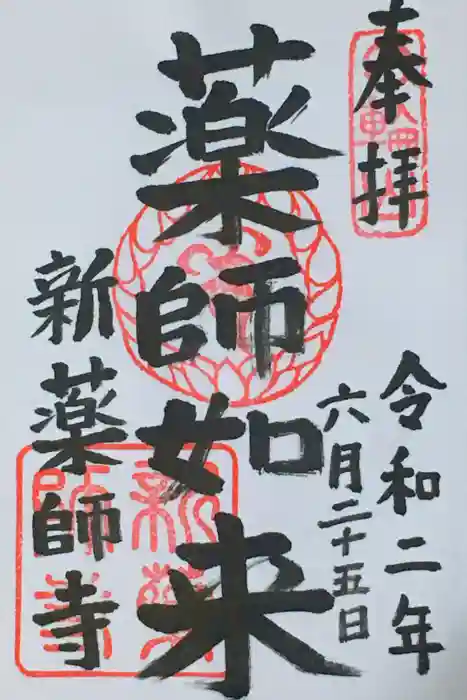 奉拝
令和二年
六月二十五日
薬師如来
新薬師寺
新薬
師寺